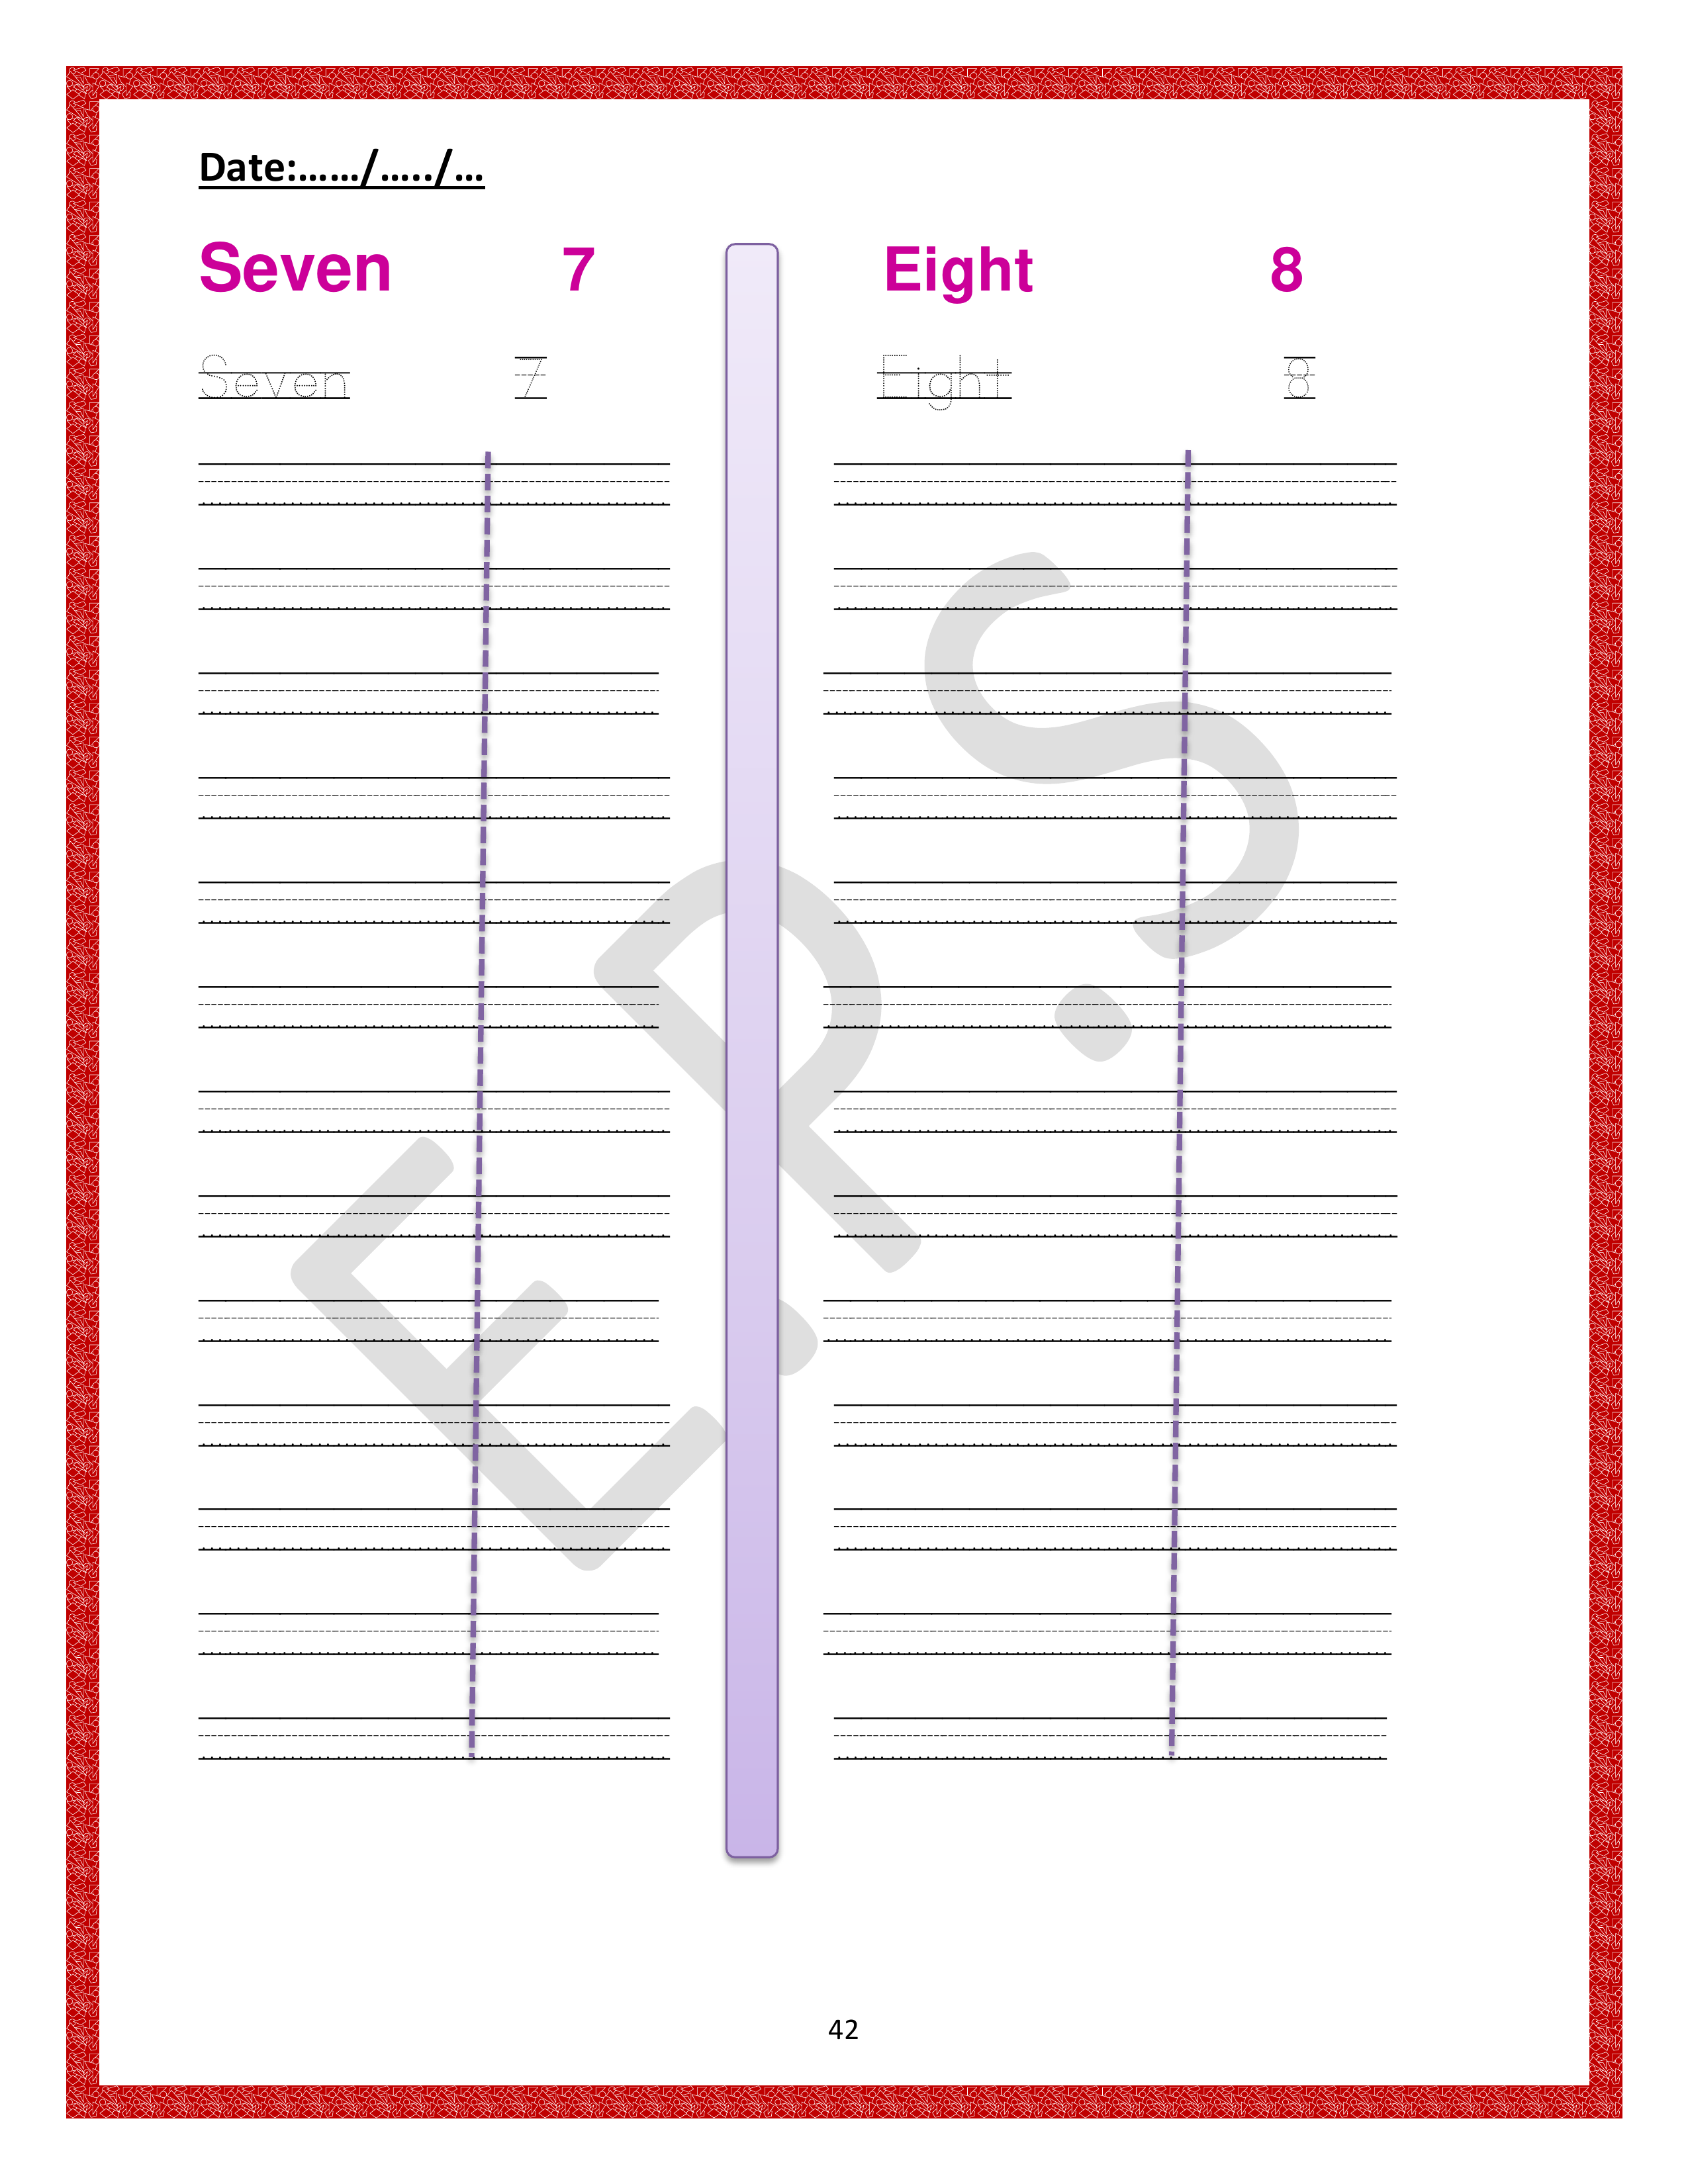 Date:....../...../...
Seven 7 Eight 8
Seven 7 Eight 8
E.P.S
42